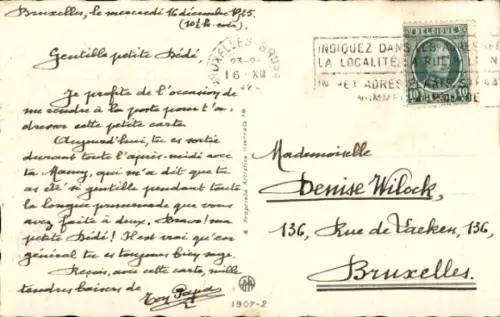 Bruxelles, le mercredi 16 décembre 1925.
(10½ h. soir)
Gentille petite Dédé
Je profite de l'occasion de
me rendre à la poste pour t'a-
dresser cette petite carte.
Aujourd'hui, tu es sortie
durant toute l'après-midi avec
ta Mamy, qui m'a dit que tu
as été si gentille pendant toute
la longue promenade que vous
avez faite à deux. Bravo! ma
petite Dédé! Il est vrai qu'en
général tu es toujours bien sage.
Reçois, avec cette carte, mille
tendres baisers de
Ton Papa
BRUXELLES BRUSSEL
16 XII
INDIQUEZ DANS LES
LA LOCALITÉ, LA RUE
IN HET ADRES
NUMMER
BELGIQUE
10 10
Proprieta Artistica riservata
Mademoiselle
Denise Wilock,
136, Rue de Laeken, 136,
Bruxelles.
1907-2